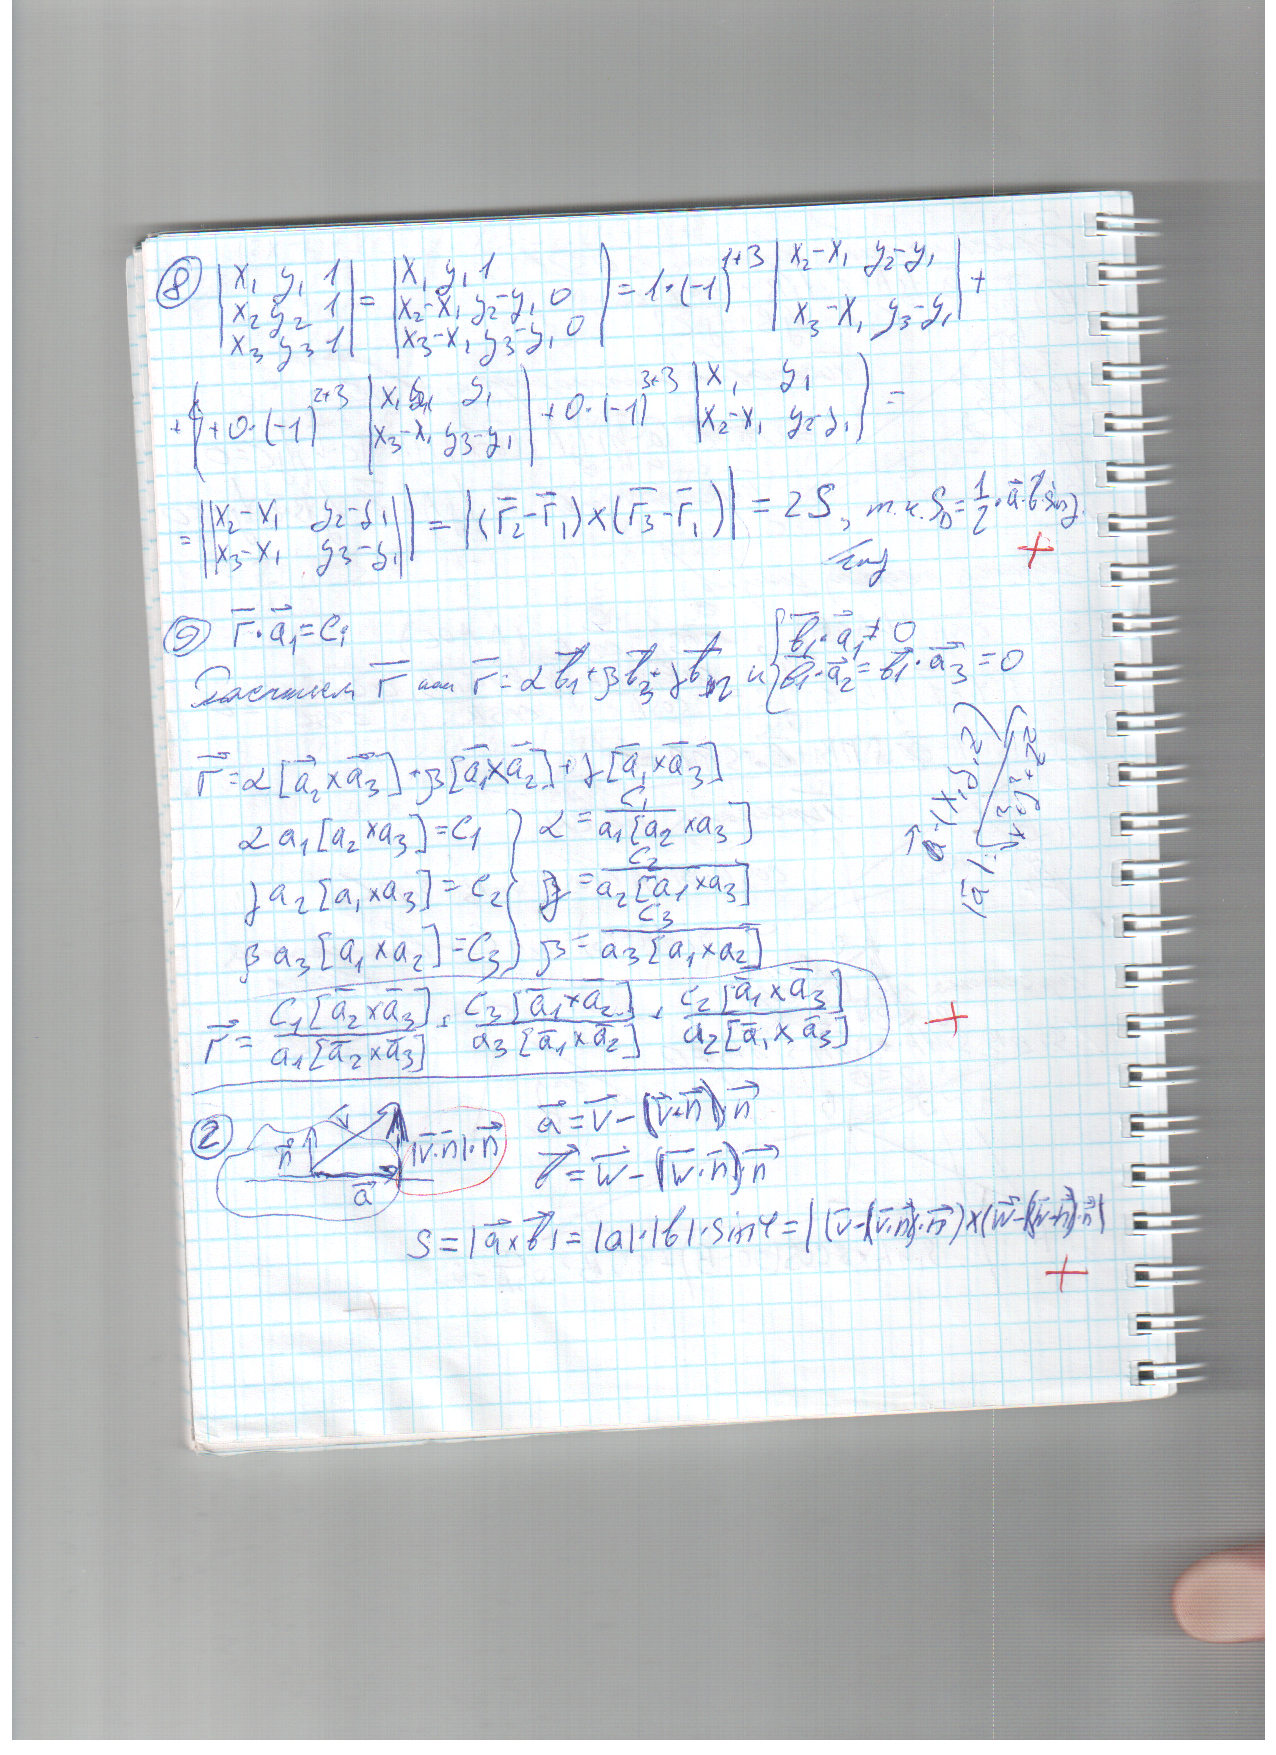 8 | x₁ y₁ 1 | = | x₁ y₁ 1 | = 1·(-1)¹⁺³ | x₂-x₁ y₂-y₁ | +
| x₂ y₂ 1 | | x₂-x₁ y₂-y₁ 0 |
| x₃ y₃ 1 | | x₃-x₁ y₃-y₁ 0 | | x₃-x₁ y₃-y₁ |
+ 0·(-1)²⁺³ | x₁ y₁ | + 0·(-1)³⁺³ | x₁ y₁ | =
| x₃-x₁ y₃-y₁ | | x₂-x₁ y₂-y₁ |
= || x₂-x₁ y₂-y₁ || = |(r̅₂-r̅₁)×(r̅₃-r̅₁)| = 2S, т.к. S_Δ = 1/2·a·b·sinγ.
|| x₃-x₁ y₃-y₁ ||
r̅·a⃗₁=cᵢ
r̅ r̅=αb⃗₁+βb⃗₃+γb⃗₂ и { b⃗₁·a⃗₁≠0
b⃗₁·a⃗₂=b⃗₁·a⃗₃=0
r⃗=α[a⃗₂×a⃗₃]+β[a⃗₁×a⃗₂]+γ[a⃗₁×a⃗₃]
αa₁[a₂×a₃]=c₁ } α=c₁/a₁[a₂×a₃]
γa₂[a₁×a₃]=c₂ } γ=c₂/a₂[a₁×a₃]
βa₃[a₁×a₂]=c₃ } β=c₃/a₃[a₁×a₂]
r⃗=c₁[a̅₂×a̅₃]/a₁[a̅₂×a̅₃]+c₃[a̅₁×a̅₂]/a₃[a̅₁×a̅₂]+c₂[a̅₁×a̅₃]/a₂[a̅₁×a̅₃]
a⃗(x,y,z)
|a̅|=√x²+y²+z²
2 n⃗ v⃗ |v̅·n̅|·n⃗ a⃗
a⃗=v⃗-(v⃗·n⃗)·n⃗
b⃗=w⃗-(w⃗·n⃗)·n⃗
S=|a⃗×b⃗|=|a|·|b|·sinφ=|(v̅-(v̅·n̅)·n⃗)×(w̅-(w̅·n̅)·n̅)|